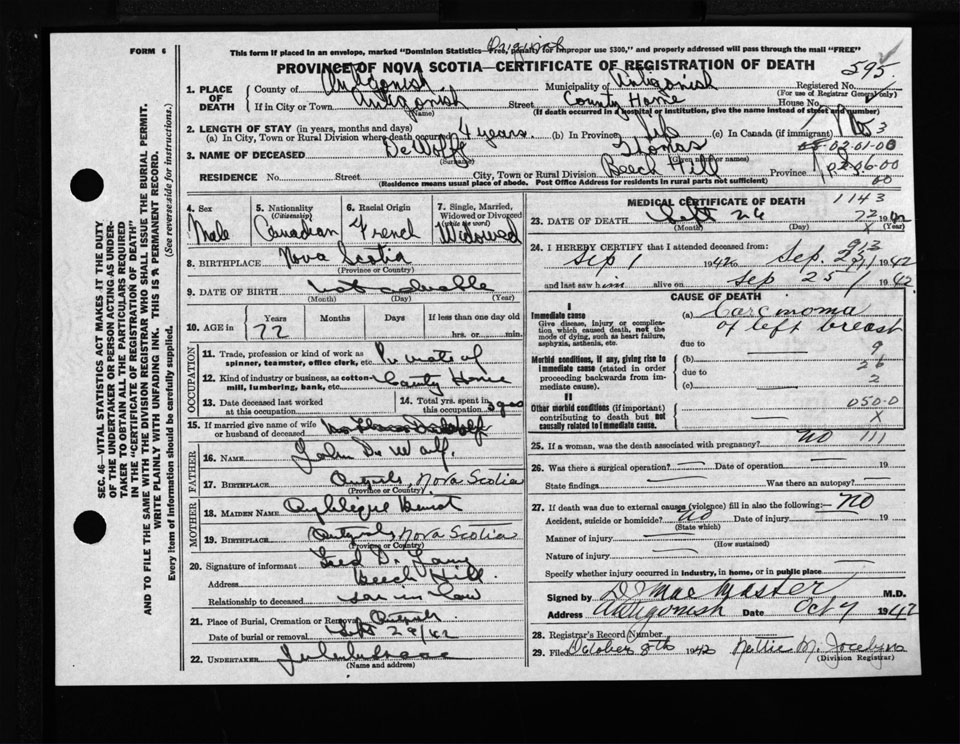 FORM 6
Original
This form if placed in an envelope, marked "Dominion Statistics—Free, penalty for improper use $300," and properly addressed will pass through the mail "FREE"
PROVINCE OF NOVA SCOTIA—CERTIFICATE OF REGISTRATION OF DEATH
595
1. PLACE OF DEATH
County of Antigonish Municipality of Antigonish Registered No.
(For use of Registrar General only)
If in City or Town Antigonish Street County Home House No.
(Name) (If death occurred in a hospital or institution, give the name instead of street and number)
2. LENGTH OF STAY (in years, months and days)
(a) In City, Town or Rural Division where death occurred 4 years. (b) In Province life (c) In Canada (if immigrant)
3. NAME OF DECEASED DeWolfe Thomas
(Surname) (Given name or names)
RESIDENCE No. Street City, Town or Rural Division Beech Hill Province
(Residence means usual place of abode. Post Office Address for residents in rural parts not sufficient)
4. Sex
Male
5. Nationality (Citizenship)
Canadian
6. Racial Origin
French
7. Single, Married, Widowed or Divorced (write the word)
Widowed
8. BIRTHPLACE Nova Scotia
(Province or Country)
9. DATE OF BIRTH
(Month) (Day) (Year)
10. AGE in
Years Months Days If less than one day old
72 hrs. or min.
OCCUPATION
11. Trade, profession or kind of work as spinner, teamster, office clerk, etc. Inmate of
12. Kind of industry or business, as cotton-mill, lumbering, bank, etc. County Home
13. Date deceased last worked at this occupation
14. Total yrs. spent in this occupation
15. If married give name of wife or husband of deceased
FATHER
16. NAME John De Wolf.
17. BIRTHPLACE Nova Scotia
(Province or Country)
MOTHER
18. MAIDEN NAME
19. BIRTHPLACE Nova Scotia
(Province or Country)
20. Signature of informant Fred D.
Address Beech Hill
Relationship to deceased son in law
21. Place of Burial, Cremation or Removal
Date of burial or removal Sept 28/42
22. UNDERTAKER
(Name and address)
MEDICAL CERTIFICATE OF DEATH
1143
23. DATE OF DEATH Sept 26 1942
(Month) (Day) (Year)
24. I HEREBY CERTIFY that I attended deceased from:
Sep 1 1942 to Sep. 1942
and last saw him alive on Sep 25 1942
CAUSE OF DEATH
I
Immediate cause
Give disease, injury or complication which caused death, not the mode of dying, such as heart failure, asphyxia, asthenia, etc.
(a) Carcinoma of left breast
due to
Morbid conditions, if any, giving rise to immediate cause (stated in order proceeding backwards from immediate cause).
due to
(c)
II
Other morbid conditions (if important) contributing to death but not causally related to immediate cause.
050.0
25. If a woman, was the death associated with pregnancy? no
26. Was there a surgical operation? Date of operation 19
State findings Was there an autopsy?
27. If death was due to external causes (violence) fill in also the following:— NO
Accident, suicide or homicide? NO Date of injury 19
(State which)
Manner of injury
(How sustained)
Nature of injury
Specify whether injury occurred in industry, in home, or in public place
Signed by MacMaster M.D.
Address Antigonish Date Oct 7 1942
28. Registrar's Record Number
29. Filed October 8th 1942 Nettie M. Jocelyn
(Division Registrar)
SEC. 46—VITAL STATISTICS ACT MAKES IT THE DUTY
OF THE UNDERTAKER OR PERSON ACTING AS UNDERTAKER TO OBTAIN ALL THE PARTICULARS REQUIRED
IN THE "CERTIFICATE OF REGISTRATION OF DEATH"
AND TO FILE THE SAME WITH THE DIVISION REGISTRAR WHO SHALL ISSUE THE BURIAL PERMIT.
WRITE PLAINLY WITH UNFADING INK. THIS IS A PERMANENT RECORD.
Every item of Information should be carefully supplied. (See reverse side for instructions.)